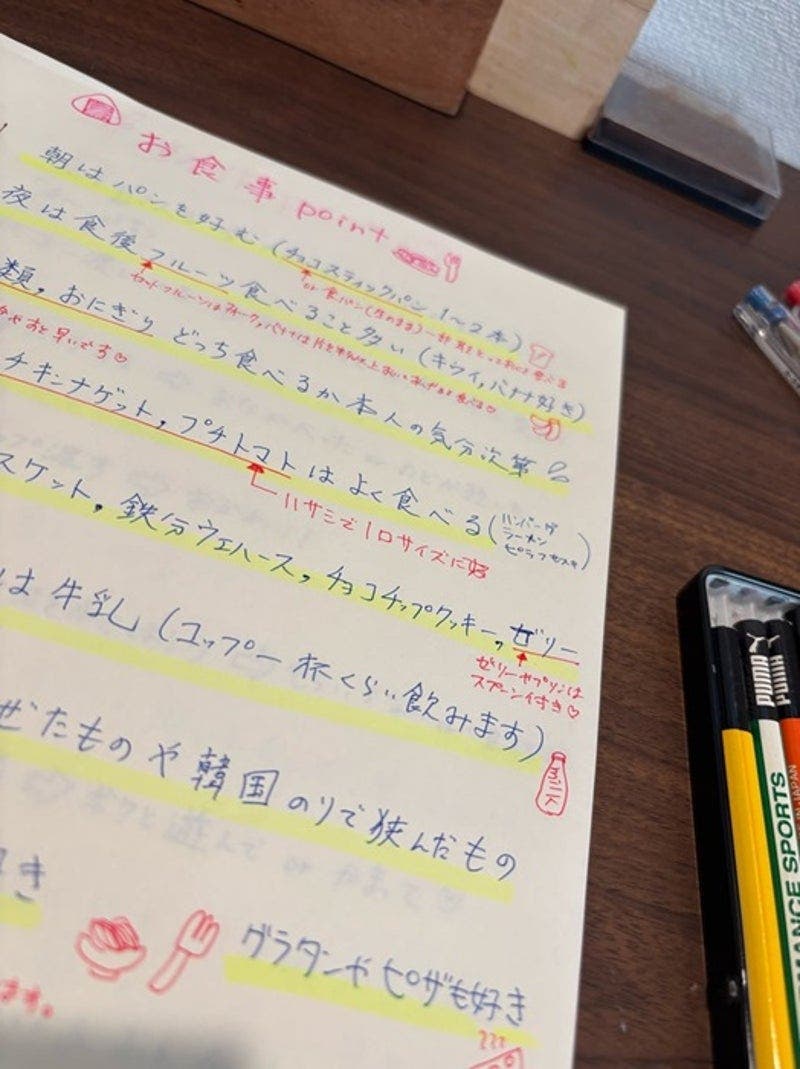 お食事point
朝はパンを好む(チョコスティックパン 1〜2本)
or 食パン(生のまま)一枚
夜は食後フルーツ食べること多い(キウイ,バナナ好き)
カットフルーツはフォーク,バナナは
類,おにぎり どっち食べるか本人の気分次第
と早いです♡
チキンナゲット,プチトマトはよく食べる(ハンバーグ
ラーメン
ピラフもスキ)
ハサミで1口サイズに
スケット,鉄分ウエハース,チョコチップクッキー,ゼリー
ゼリーやプリンは
スプーン付き♡
は牛乳(コップ一杯くらい飲みます)
ぜたものや韓国のりで狭んだもの
き
グラタンやピザも好き
ます。
PUMA
PUMA
MANCE SPORTS
JAPAN